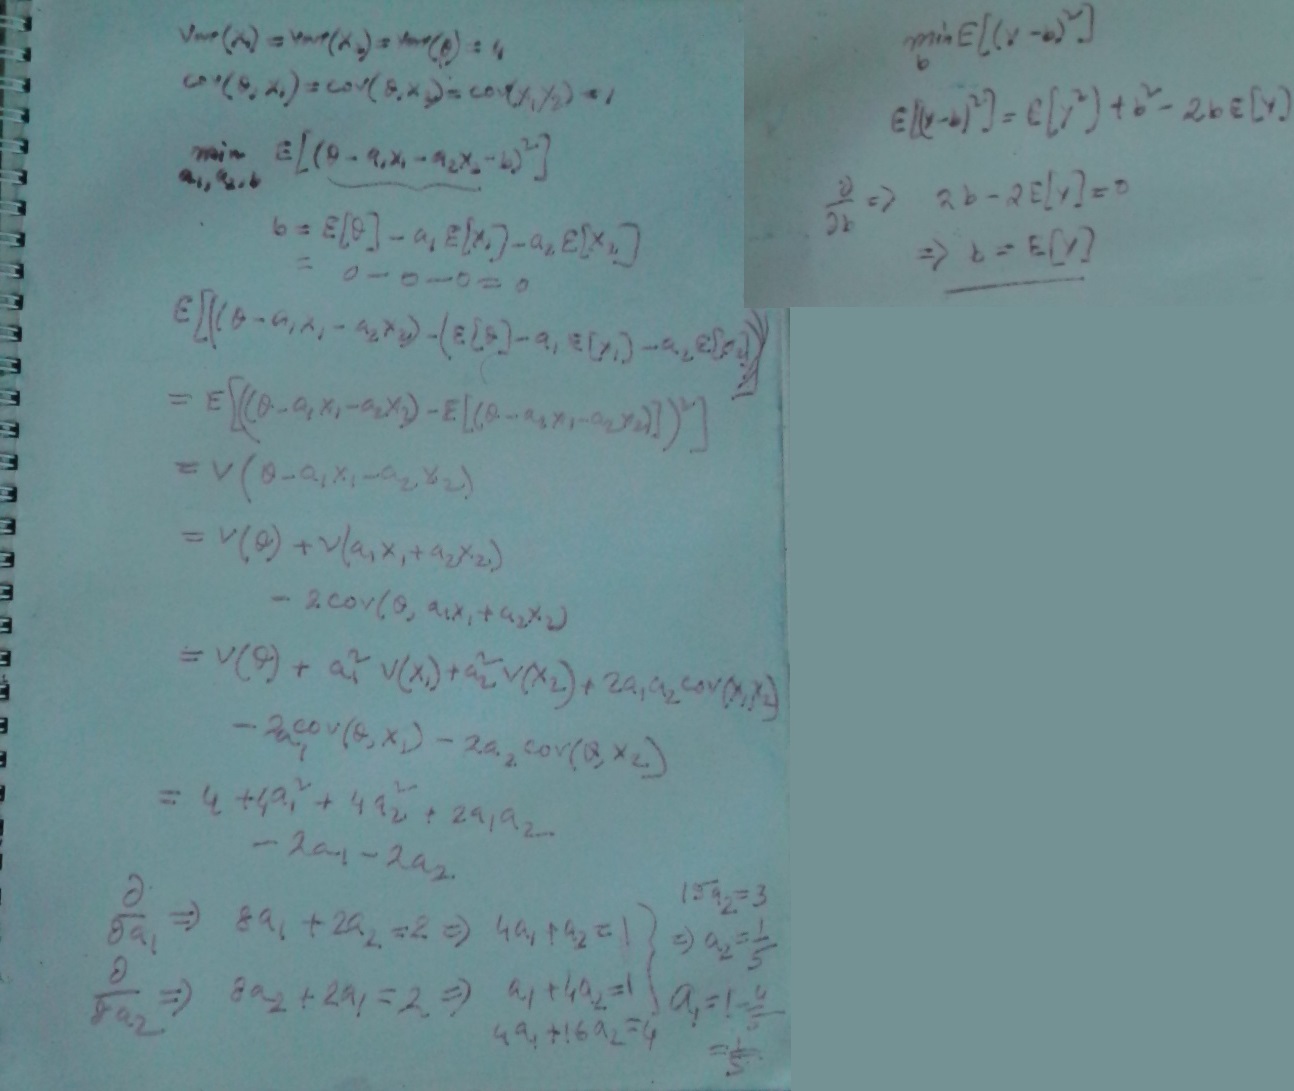 Var(x₁) = Var(x₂) = Var(θ) = 4
cov(θ, x₁) = cov(θ, x₂) = cov(x₁x₂) = 1
min E[(θ - a₁x₁ - a₂x₂ - b)²]
a₁, a₂, b
b = E[θ] - a₁ E[x₁] - a₂ E[x₂]
= 0 - 0 - 0 = 0
E[((θ - a₁x₁ - a₂x₂) - (E[θ] - a₁ E[x₁] - a₂ E[x₂]))²]
= E[((θ - a₁x₁ - a₂x₂) - E[(θ - a₁x₁ - a₂x₂)])²]
= V(θ - a₁x₁ - a₂x₂)
= V(θ) + V(a₁x₁ + a₂x₂)
- 2cov(θ, a₁x₁ + a₂x₂)
= V(θ) + a₁² V(x₁) + a₂² V(x₂) + 2a₁a₂cov(x₁x₂)
- 2a₁cov(θ, x₁) - 2a₂ cov(θ, x₂)
= 4 + 4a₁² + 4a₂² + 2a₁a₂
- 2a₁ - 2a₂
∂/∂a₁ ⇒ 8a₁ + 2a₂ = 2 ⇒ 4a₁ + a₂ = 1
∂/∂a₂ ⇒ 8a₂ + 2a₁ = 2 ⇒ a₁ + 4a₂ = 1
4a₁ + 16a₂ = 4
15a₂ = 3
⇒ a₂ = 1/5
a₁ = 1 - 4/5
= 1/5
min E[(Y - b)²]
b
E[(Y - b)²] = E[Y²] + b² - 2b E[Y]
∂/∂b ⇒ 2b - 2E[Y] = 0
⇒ b = E[Y]